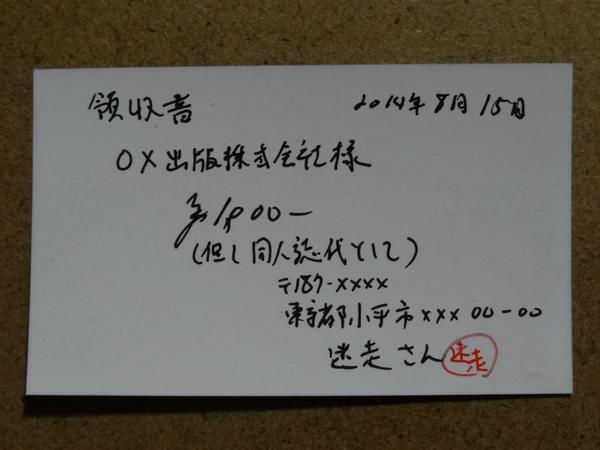 領収書 2014年8月15日
OX出版株式会社様
¥1,800-
(但し同人誌代として)
〒187-XXXX
東京都小平市XXX 00-00
迷走さん 迷走